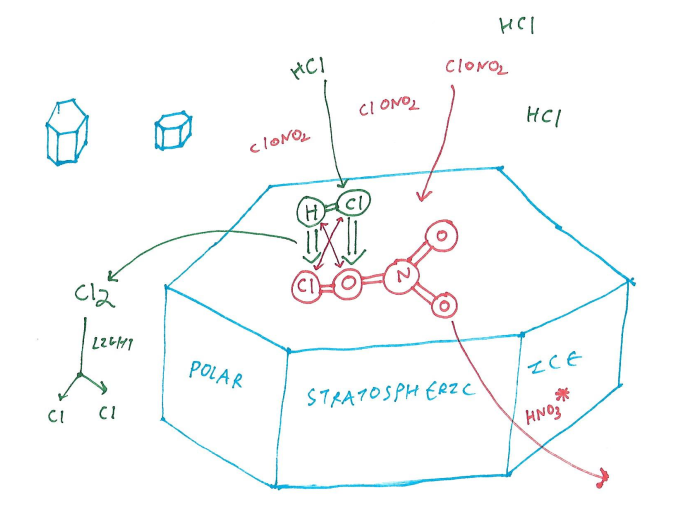 HCl
HCl
ClONO2
ClONO2
HCl
ClONO2
H Cl
Cl O N O
O
Cl2
LIGHT
Cl Cl
POLAR
STRATOSPHERIC
ICE
HNO3*